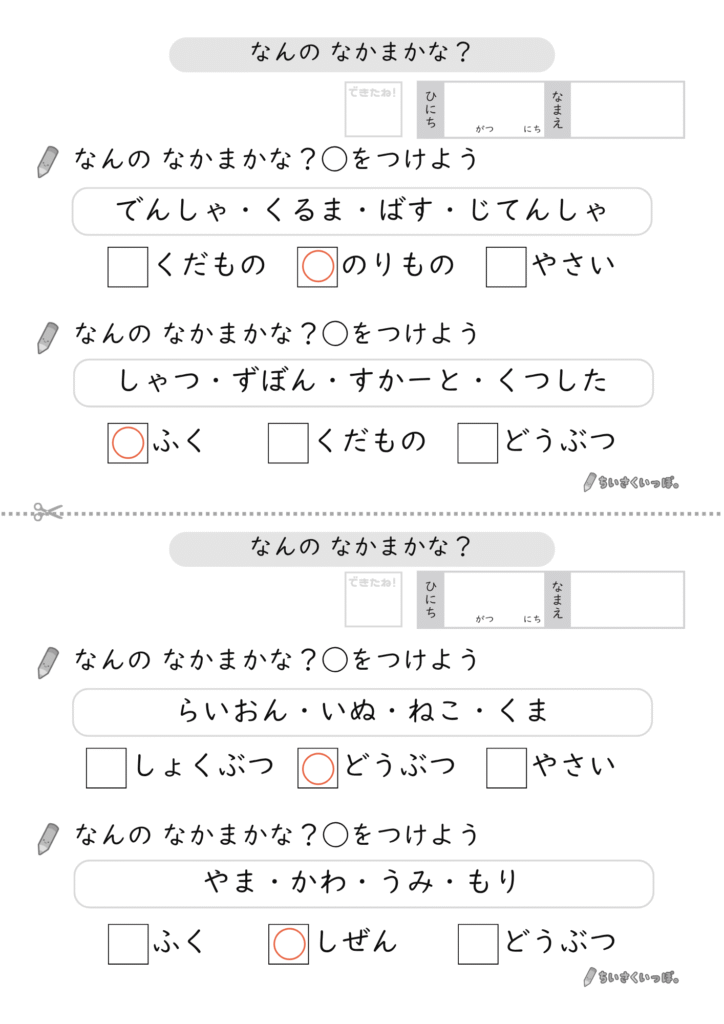 なんの なかまかな？
できたね！
ひにち
がつ にち
なまえ
なんの なかまかな？○をつけよう
でんしゃ・くるま・ばす・じてんしゃ
くだもの ○のりもの やさい
なんの なかまかな？○をつけよう
しゃつ・ずぼん・すかーと・くつした
○ふく くだもの どうぶつ
ちいさくいっぽ。
なんの なかまかな？
できたね！
ひにち
がつ にち
なまえ
なんの なかまかな？○をつけよう
らいおん・いぬ・ねこ・くま
しょくぶつ ○どうぶつ やさい
なんの なかまかな？○をつけよう
やま・かわ・うみ・もり
ふく ○しぜん どうぶつ
ちいさくいっぽ。